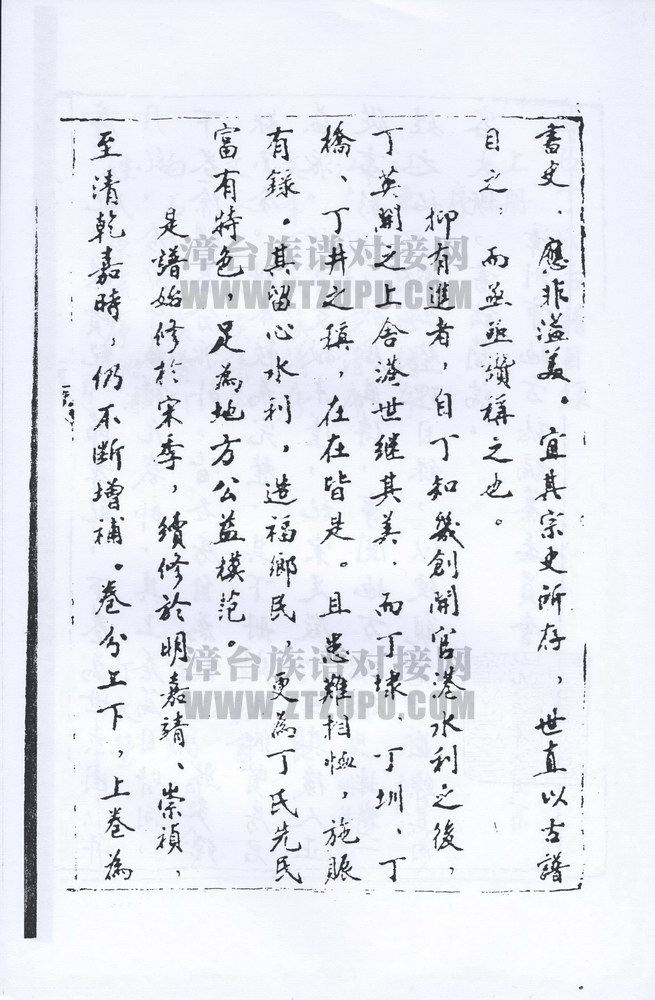 書史、應非溢美。宜其宗史所存，世直以古譜
目之，而亟亟讚稱之也。
抑有進者，自丁知幾創開官港水利之後，
丁英開之上舍濟世继其美．而丁埭、丁圳、丁
橋、丁井之稱，在在皆是。且患難相恤，施賑
有錄。其留心水利，造福鄉民，更為丁氏先民
富有特色，足為地方公益模范。
是譜始修於宋季，續修於明嘉靖、崇禎，
至清乾嘉時，仍不斷增補。卷分上下，上卷為
漳台族谱对接网
WWW.ZTZUPU.COM
漳台族谱对接网
WWW.ZTZUPU.COM